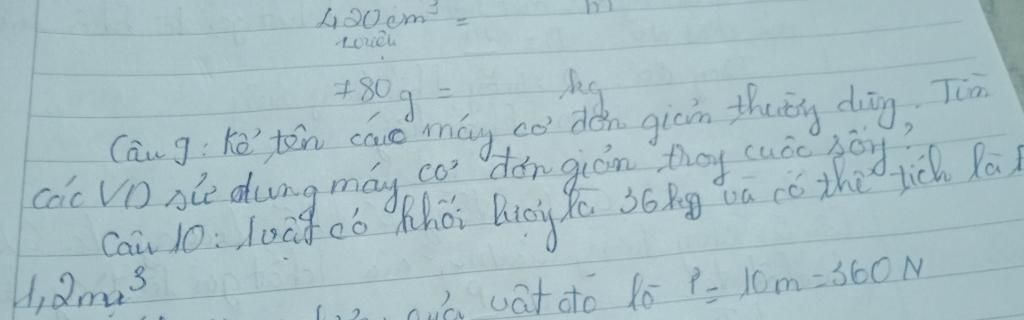 420cm³ =
780g = kg
Câu 9: Kể tên các máy cơ đơn giản thường dùng. Tìm
các VD sử dụng máy cơ đơn giản trong cuộc sống
Câu 10: 1 vật có khối lượng là 36kg và có thể tích là
1,2m³
vật đó là P = 10m = 360N